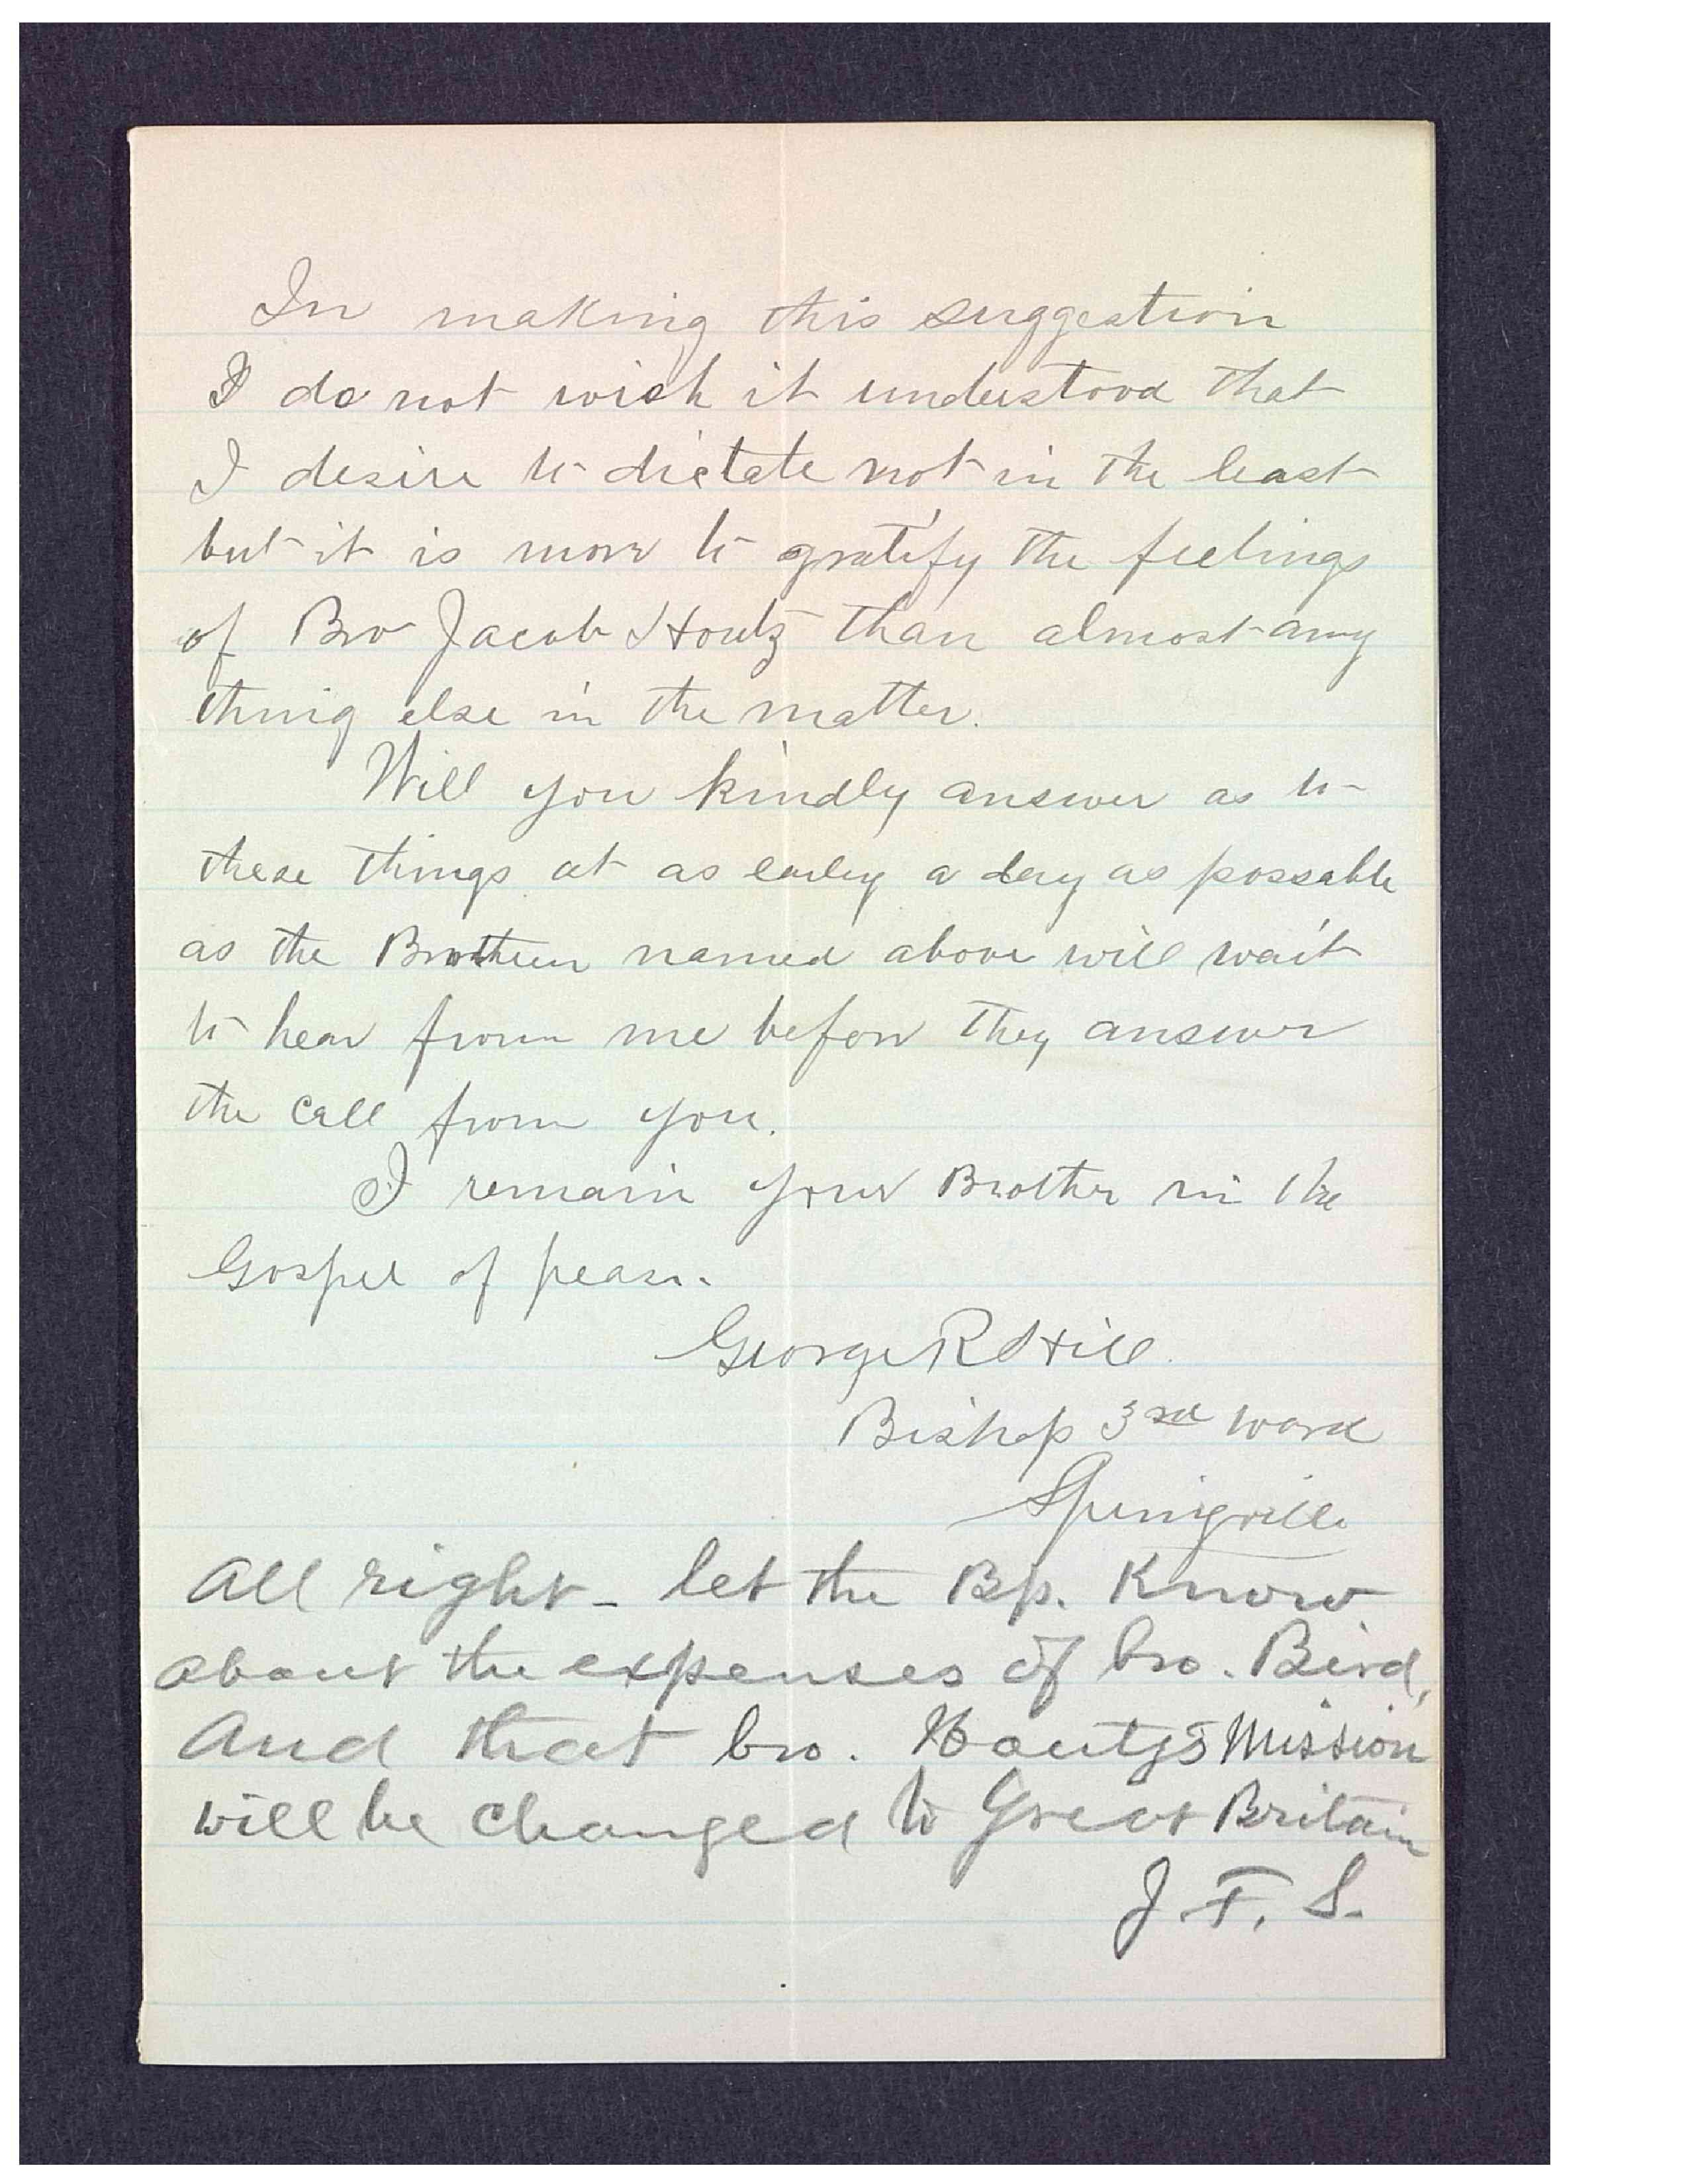 In making this suggestion
I do not wish it understood that
I desire to dictate not in the least
but it is more to gratify the feelings
of Bro Jacob Houtz than almost any
thing else in the matter.
Will you kindly answer as to
these things at as early a day as possable
as the Brotheren named above will wait
to hear from me before they answer
the call from you.
I remain your Brother in the
Gospel of peace.
George R Hill.
Bishop 3rd ward
Springville
All right - let the Bp. Know
about the expenses of bro. Bird,
And that bro. Houtz's Mission
will be changed to Great Britain
J. F. S.